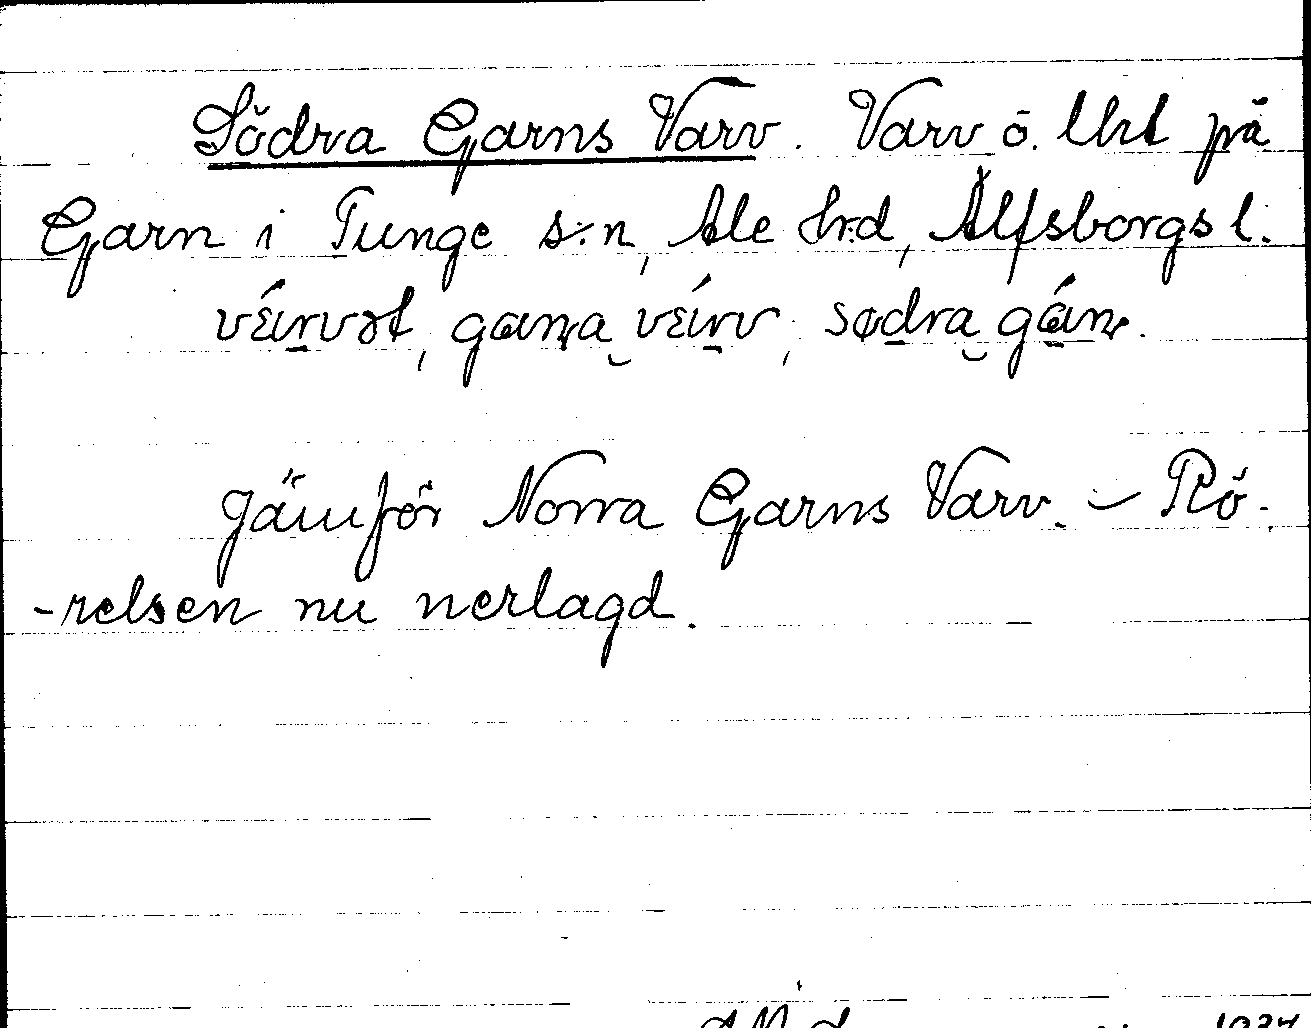 Södra Garns Varv. Varv ö. lht på
Garn i Tunge s:n, Ale h:d, Älfsborgs l.
vɛ́ɩrvət, gɑnạ vɛ́ɩrv, sødra gɑ́ɩn.
Jämför Norra Garns Varv. – Rö-
-relsen nu nerlagd.